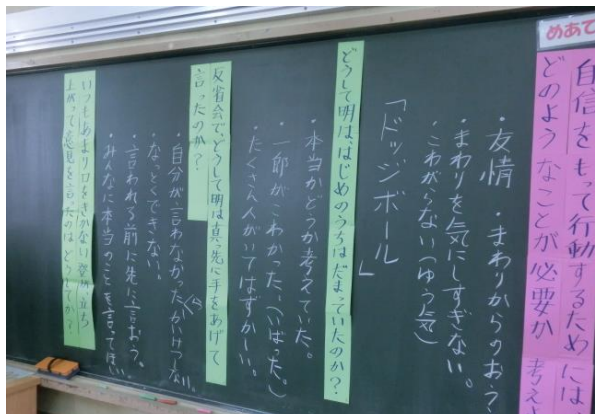 めあて
自信をもって行動するためには、
どのようなことが必要か考え
・友情 ・まわりからのおう
・まわりを気にしすぎない。
・こわがらない(ゆう気)
「ドッジボール」
どうして明は、はじめのうちはだまっていたのか?
・本当かどうか考えていた。
・一郎がこわかった。(いばった。)
・たくさん人がいてはずかしい。
反省会で、どうして明は真っ先に手をあげて
言ったのか?
・自分が言わなかったから
なっとくできない。
・言われる前に先に言おう。
・みんなに本当のことを言ってほしい
いつもあまり口をきかない
上がって意見を言ったのはどうしてか?